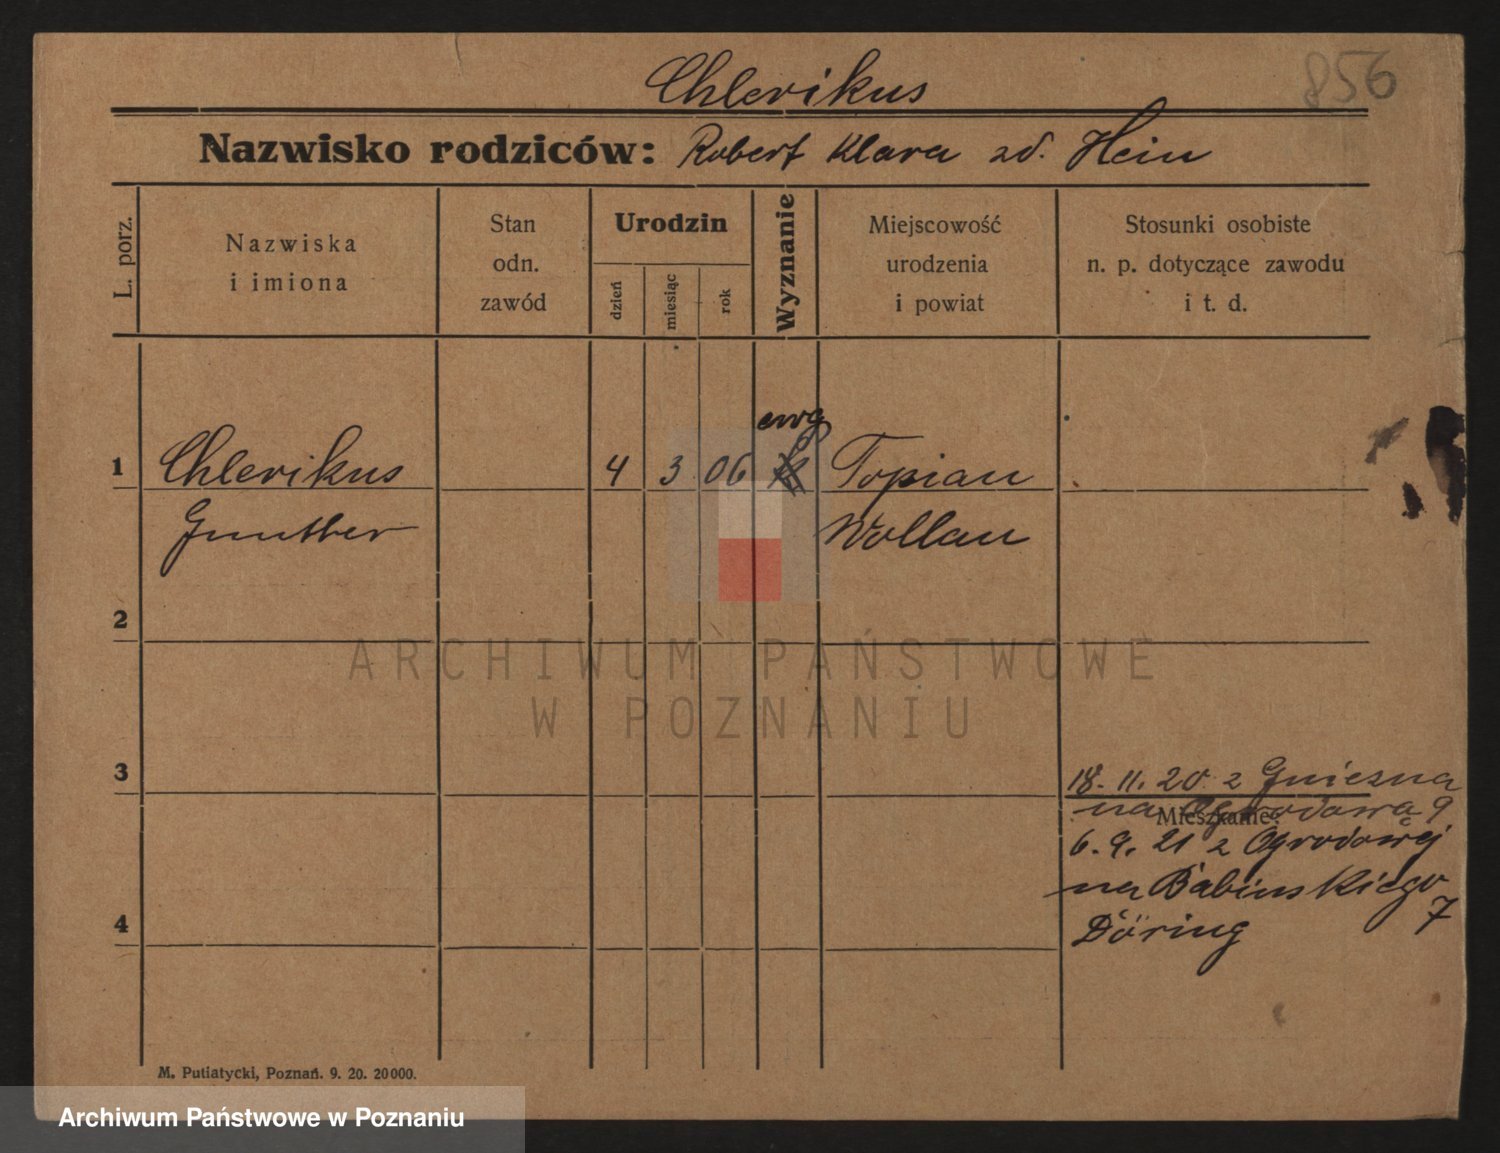 Chlerikus
856
Nazwisko rodziców: Robert Klara zd. Hein
L. porz.
Nazwiska
i imiona
Stan
odn.
zawód
Urodzin
dzień
miesiąc
rok
Wyznanie
Miejscowość
urodzenia
i powiat
Stosunki osobiste
n. p. dotyczące zawodu
i t. d.
ewg
1 Chlerikus 4 3 06 Topian
Gunther Wollau
2
3
18. 11. 20 z Gniezna
na Ogrodową 9
Mieszkanie:
6. 9. 21 z Ogrodowej
na Babinskiego 7
4
Döring
M. Putiatycki, Poznań. 9. 20. 20000.
ARCHIWUM PAŃSTWOWE
W POZNANIU
Archiwum Państwowe w Poznaniu